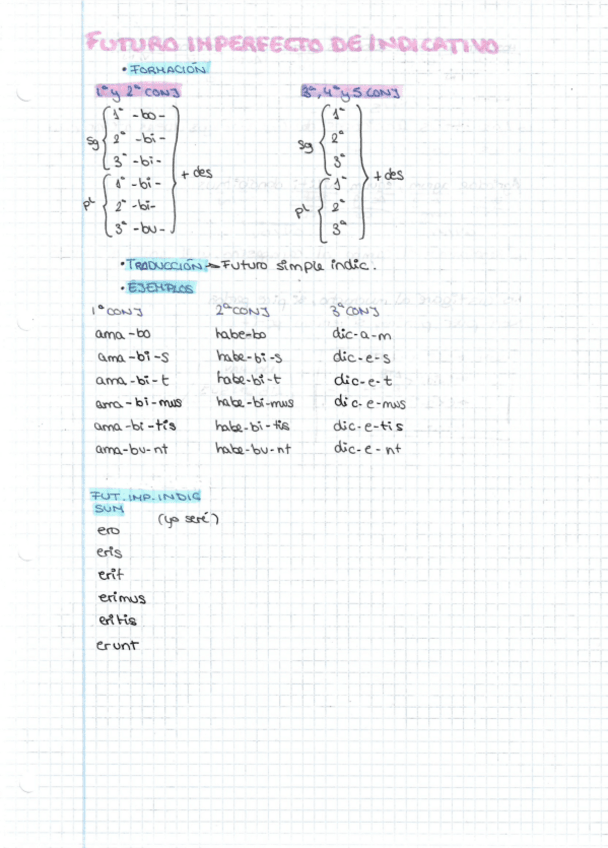 FUTURO IMPERFECTO DE INDICATIVO
• FORMACIÓN
1ª y 2ª CONJ
sg
1ª -bo-
2ª -bi-
3ª -bi-
pl
1ª -bi-
2ª -bi-
3ª -bu-
+ des
3ª, 4ª y 5 CONJ
sg
1ª
2ª
3ª
pl
1ª
2ª
3ª
+ des
• TRADUCCIÓN → Futuro simple indic.
• EJEMPLOS
1ª CONJ 2ª CONJ 3ª CONJ
ama-bo habe-bo dic-a-m
ama-bi-s habe-bi-s dic-e-s
ama-bi-t habe-bi-t dic-e-t
ama-bi-mus habe-bi-mus dic-e-mus
ama-bi-tis habe-bi-tis dic-e-tis
ama-bu-nt habe-bu-nt dic-e-nt
FUT. IMP. INDIC
SUM
(yo seré)
ero
eris
erit
erimus
eritis
erunt